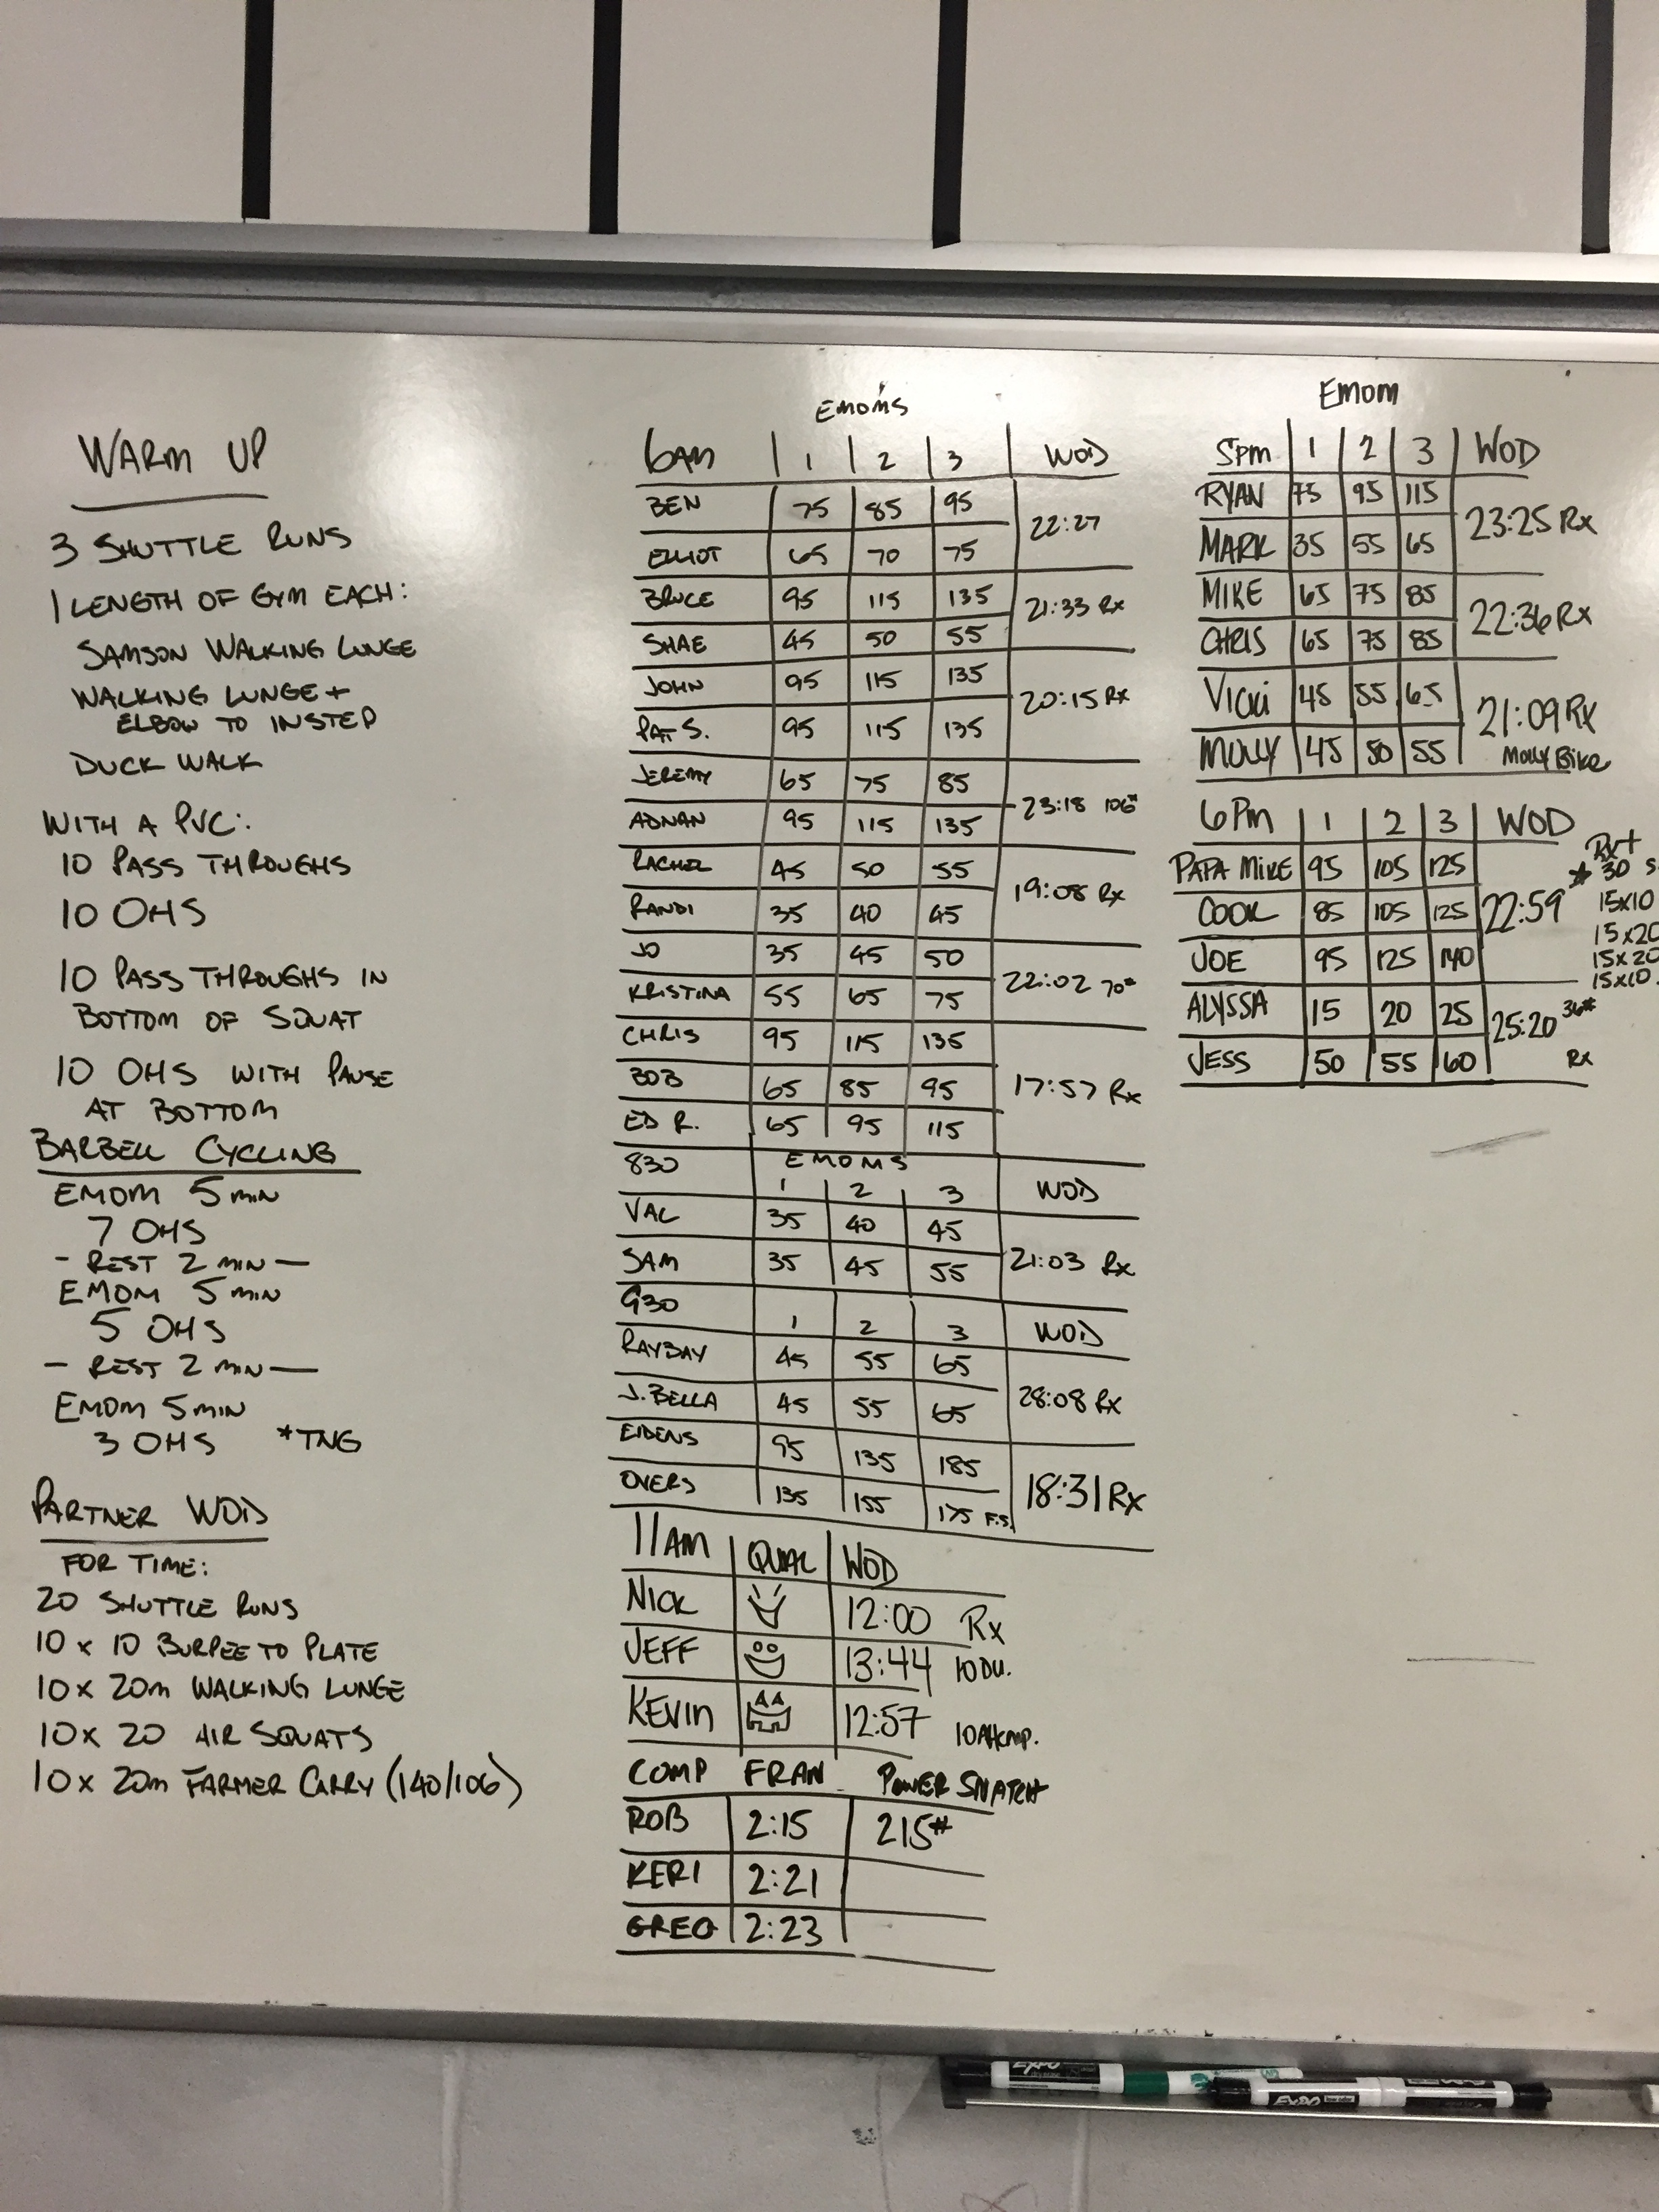 WARM UP
3 SHUTTLE RUNS
1 LENGTH OF GYM EACH:
SAMSON WALKING LUNGE
WALKING LUNGE +
ELBOW TO INSTEP
DUCK WALK
WITH A PVC:
10 PASS THROUGHS
10 OHS
10 PASS THROUGHS IN
BOTTOM OF SQUAT
10 OHS WITH PAUSE
AT BOTTOM
BARBELL CYCLING
EMOM 5 MIN
7 OHS
- REST 2 MIN -
EMOM 5 MIN
5 OHS
- REST 2 MIN -
EMOM 5 MIN
3 OHS *TNG
PARTNER WOD
FOR TIME:
20 SHUTTLE RUNS
10 x 10 BURPEE TO PLATE
10 x 20m WALKING LUNGE
10 x 20 AIR SQUATS
10 x 20m FARMER CARRY (140/106)
EMOM'S
6AM 1 2 3 WOD
BEN 75 85 95
22:27
ELLIOT 65 70 75
BRUCE 95 115 135
21:33 Rx
SHAE 45 50 55
JOHN 95 115 135
20:15 Rx
PAT S. 95 115 135
JEREMY 65 75 85
23:18 106#
ADNAN 95 115 135
RACHEL 45 50 55
19:08 Rx
RANDI 35 40 45
JO 35 45 50
22:02 70#
KRISTINA 55 65 75
CHRIS 95 115 135
BOB 65 85 95
17:57 Rx
ED R. 65 95 115
830 EMOMS
1 2 3 WOD
VAL 35 40 45
21:03 Rx
SAM 35 45 55
930 1 2 3 WOD
RAYBAY 45 55 65
28:08 Rx
J. BELLA 45 55 65
EIDENS 95 135 185
18:31 Rx
OVERS 135 155 175 F.S.
11AM QUAL WOD
NICK 12:00 Rx
JEFF 13:44 10 DU.
KEVIN 12:57
COMP FRAN POWER SNATCH
ROB 2:15 215#
KERI 2:21
GREG 2:23
EMOM
5pm 1 2 3 WOD
RYAN 75 95 115
23:25 Rx
MARK 35 55 65
MIKE 65 75 85
22:36 Rx
CHRIS 65 75 85
VICKI 45 55 65
21:09 Rx
MOLLY 45 50 55 MOLLY BIKE
6PM 1 2 3 WOD
Rx+
PAPA MIKE 95 105 125
* 30
COOK 85 105 125 22:59
15x10
15x20
JOE 95 125 140
15x20
15x10
ALYSSA 15 20 25
25:20 36#
JESS 50 55 60 Rx
EXPO
EXPO